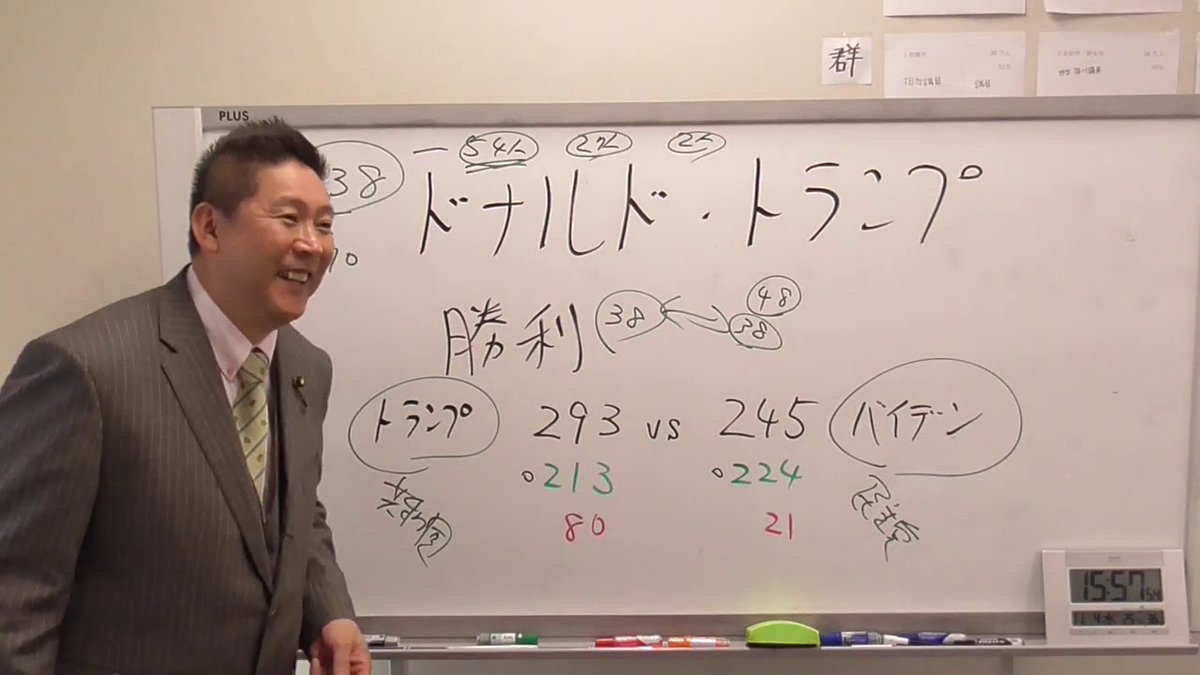 群
PLUS
54人 22人 2人
38
ドナルド・トランプ
10
勝利 38 48
38
トランプ 293 vs 245 バイデン
213 224
共和党 80 21 民主党
15:57 54